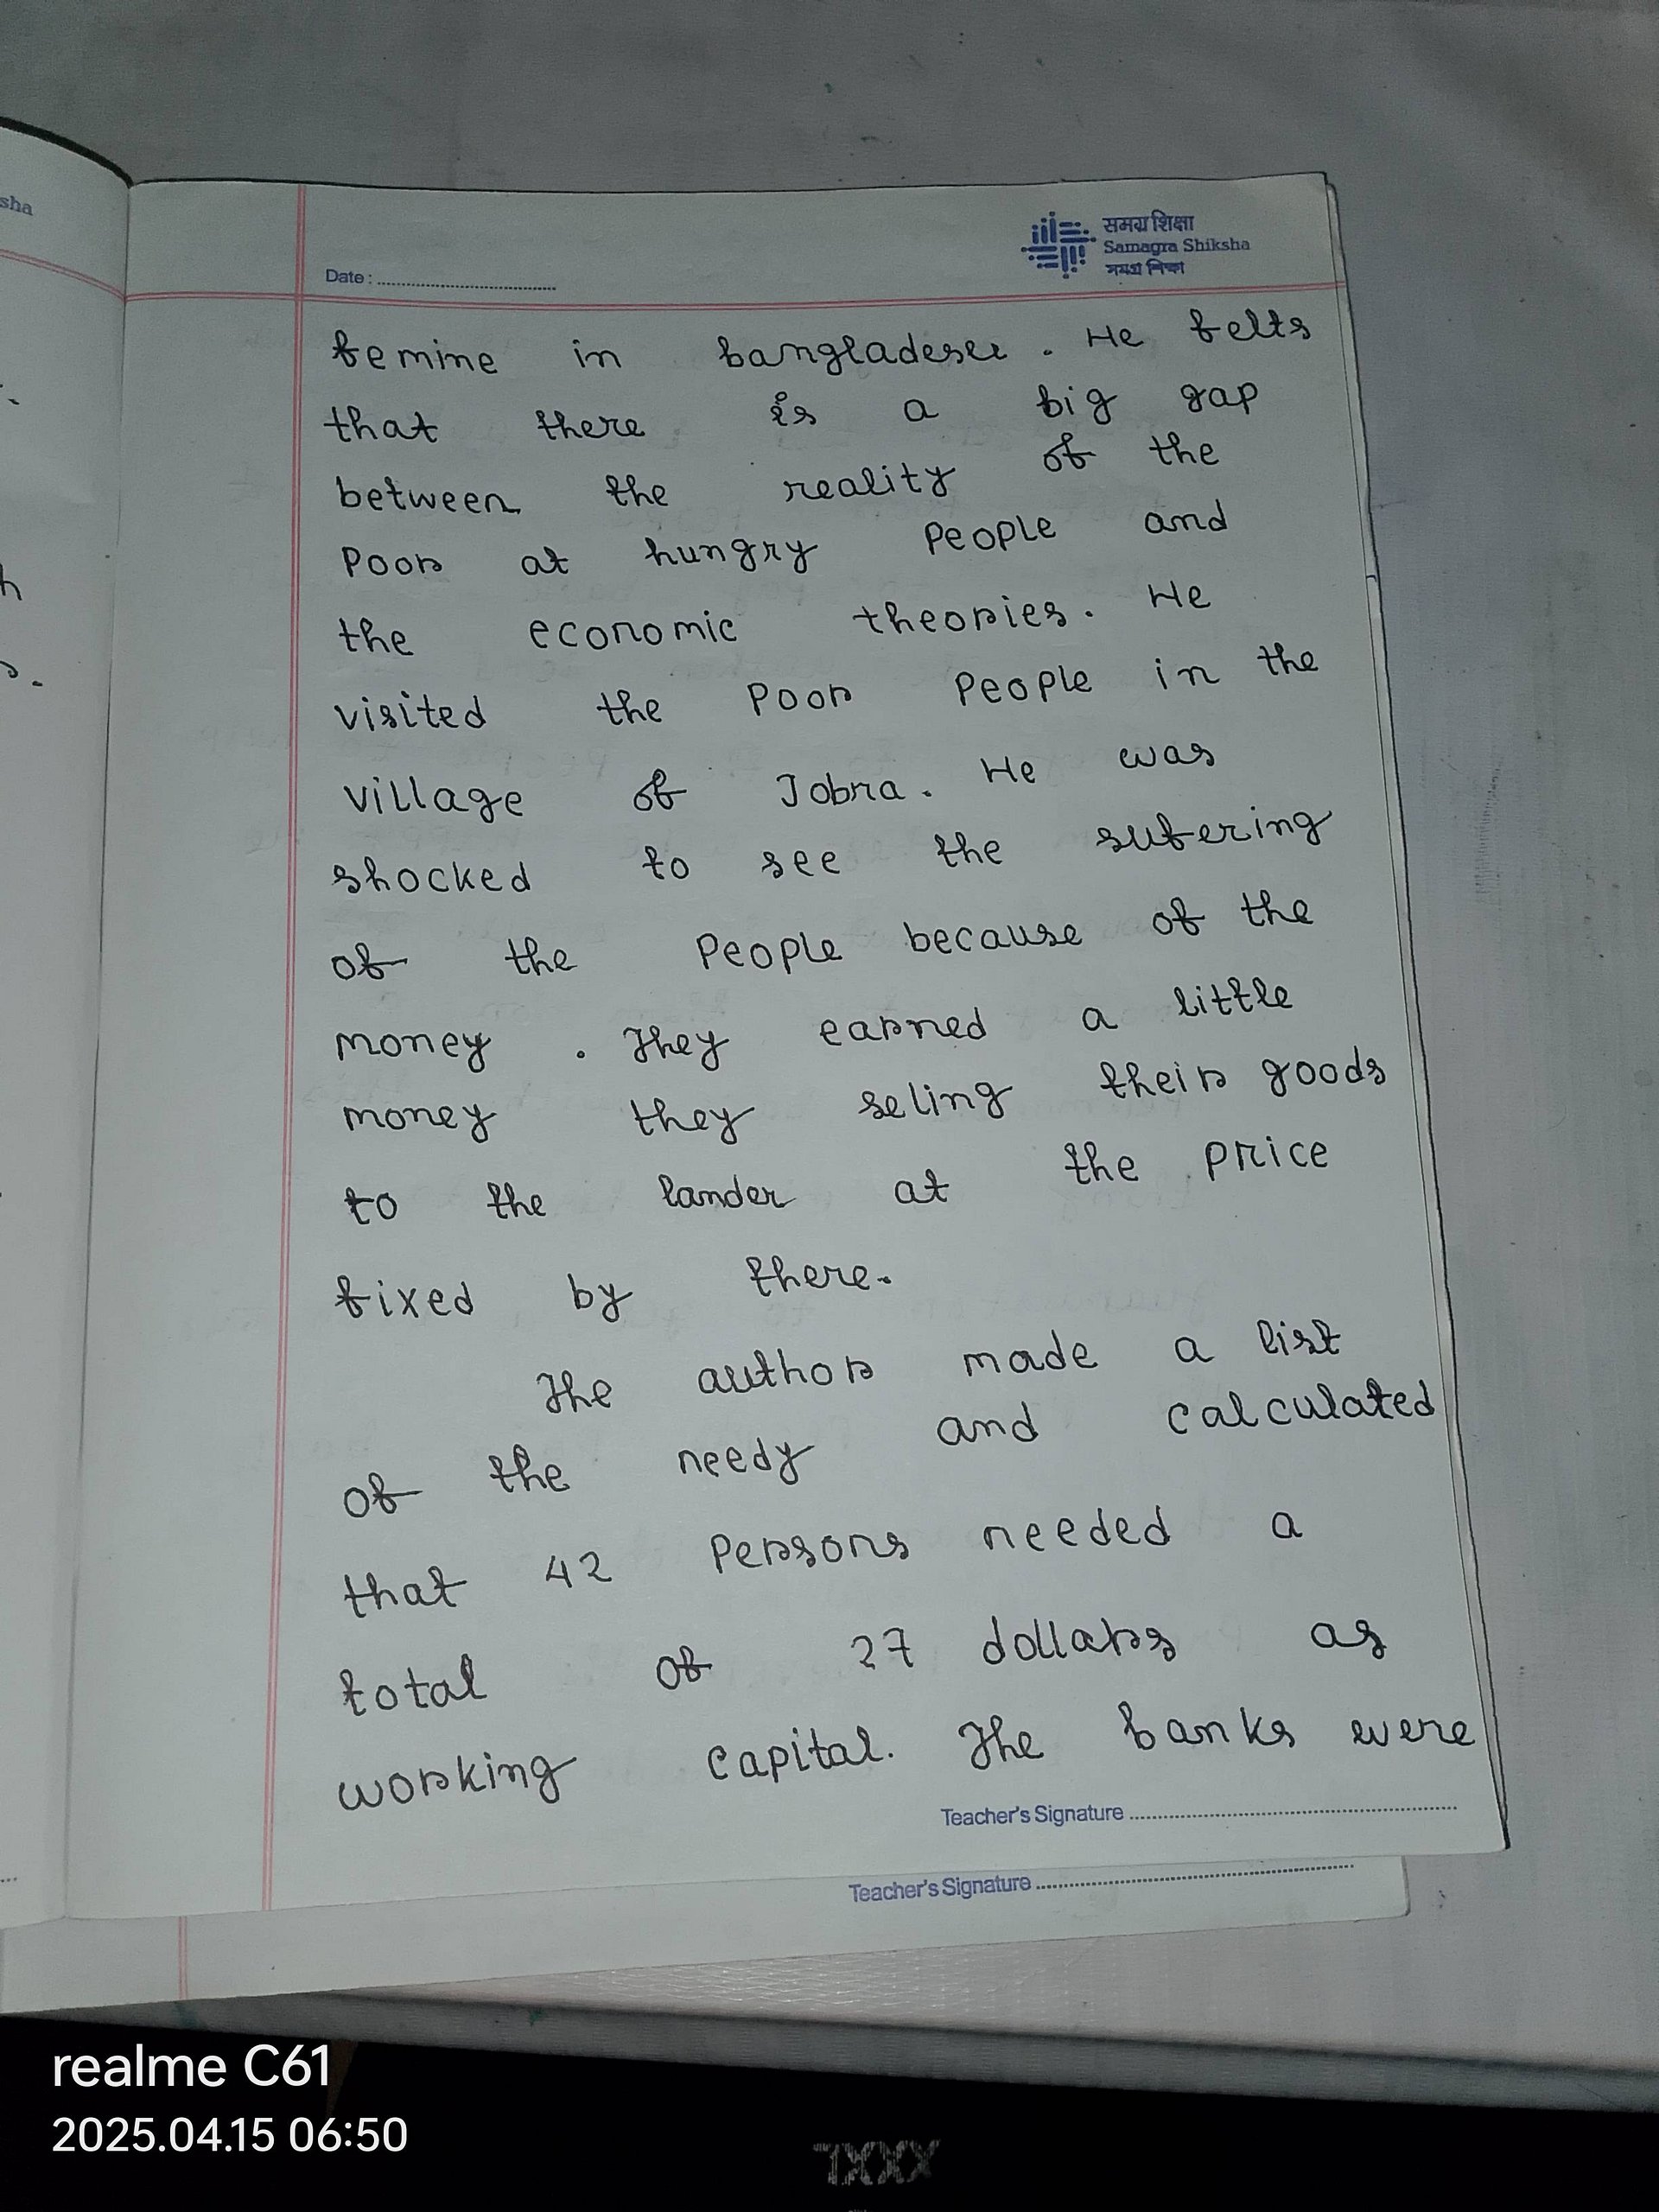 sha
समग्र शिक्षा
Samagra Shiksha
Date :
femine in bangladeser. He felts
that there is a big gap
between the reality of the
poor at hungry people and
the economic theories. He
visited the poor people in the
village of Jobra. He was
shocked to see the sufering
of the people because of the
money. They earned a little
money they seling their goods
to the lander at the price
fixed by there.
The author made a list
of the needy and calculated
that 42 persons needed a
total of 27 dollars as
working capital. The banks were
Teacher's Signature
Teacher's Signature
realme C61
2025.04.15 06:50